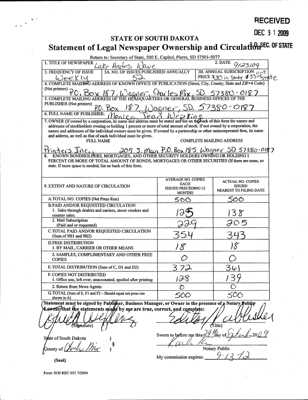 RECEIVED
DEC 31 2009
S.D. SEC. OF STATE
STATE OF SOUTH DAKOTA
Statement of Legal Newspaper Ownership and Circulation
Return to: Secretary of State, 500 E. Capitol, Pierre, SD 57501-5077
1. TITLE OF NEWSPAPER Lake Andes Wave
2. DATE 9/23/09
3. FREQUENCY OF ISSUE Weekly
3A. NO. OF ISSUES PUBLISHED ANNUALLY 52
3B. ANNUAL SUBSCRIPTION PRICE
4. COMPLETE MAILING ADDRESS OF KNOWN OFFICE OF PUBLICATION (Street, City, County, State and ZIP+4 Code) (Not printers)
P.O. Box 187, Wagner, Charles Mix, SD 57380-0187
5. COMPLETE MAILING ADDRESS OF THE HEADQUARTERS OR GENERAL BUSINESS OFFICES OF THE PUBLISHER (Not printers)
P.O. Box 187, Wagner, SD 57380-0187
6. FULL NAME OF PUBLISHER: Monica Jean Wepking
7. OWNER (If owned by a corporation, its name and address must be stated and also immediately thereunder the names and addresses of stockholders owning or holding 1 percent or more of total amount of stock. If not owned by a corporation, the names and addresses of the individual owners must be given. If owned by a partnership or other unincorporated firm, its name and address, as well as that of each individual must be given.
FULL NAME COMPLETE MAILING ADDRESS
Printers Inc, 209 S. Main P.O. Box 187 Wagner SD 57380-0187
8. KNOWN BONDHOLDERS, MORTGAGES, AND OTHER SECURITY HOLDERS OWNING OR HOLDING 1 PERCENT OR MORE OF TOTAL AMOUNT OF BONDS, MORTGAGES OR OTHER SECURITIES (If there are none, so state. If more space is needed, list on back of this form.
9. EXTENT AND NATURE OF CIRCULATION
AVERAGE NO. COPIES EACH ISSUES PRECEDING 12 MONTHS
ACTUAL NO. COPIES ISSUED NEAREST TO FILING DATE
A. TOTAL NO. COPIES (Net Press Run) 500 500
B. PAID AND/OR REQUESTED CIRCULATION
1. Sales through dealers and carriers, street vendors and counter sales. 125 138
2. Mail Subscription (Paid and or requested) 229 205
C. TOTAL PAID AND/OR REQUESTED CIRCULATION (Sum of 9B1 and 9B2) 354 343
D. FREE DISTRIBUTION
1. BY MAIL, CARRIER OR OTHER MEANS 18 18
2. SAMPLES, COMPLIMENTARY AND OTHER FREE COPIES 0 0
E. TOTAL DISTRIBUTION (Sum of C, D1 and D2) 372 361
F. COPIES NOT DISTRIBUTED
1. Office use, left over, unaccounted, spoiled after printing 128 139
2. Return from News Agents 0 0
G. TOTAL (Sum of E, F1 and F2 - Should equal net press run shown in A) 500 500
Statement must be signed by Publisher, Business Manager, or Owner in the presence of a Notary Public
I swear that the statements made by me are true, correct, and complete:
(Signature)
Editor/Publisher
(Title)
State of South Dakota )
County of Charles Mix )
§
Sworn to before me this day of September 2009
Notary Public
(Seal)
My commission expires: 9-13-12
Form: SOS REC 051 7/2004